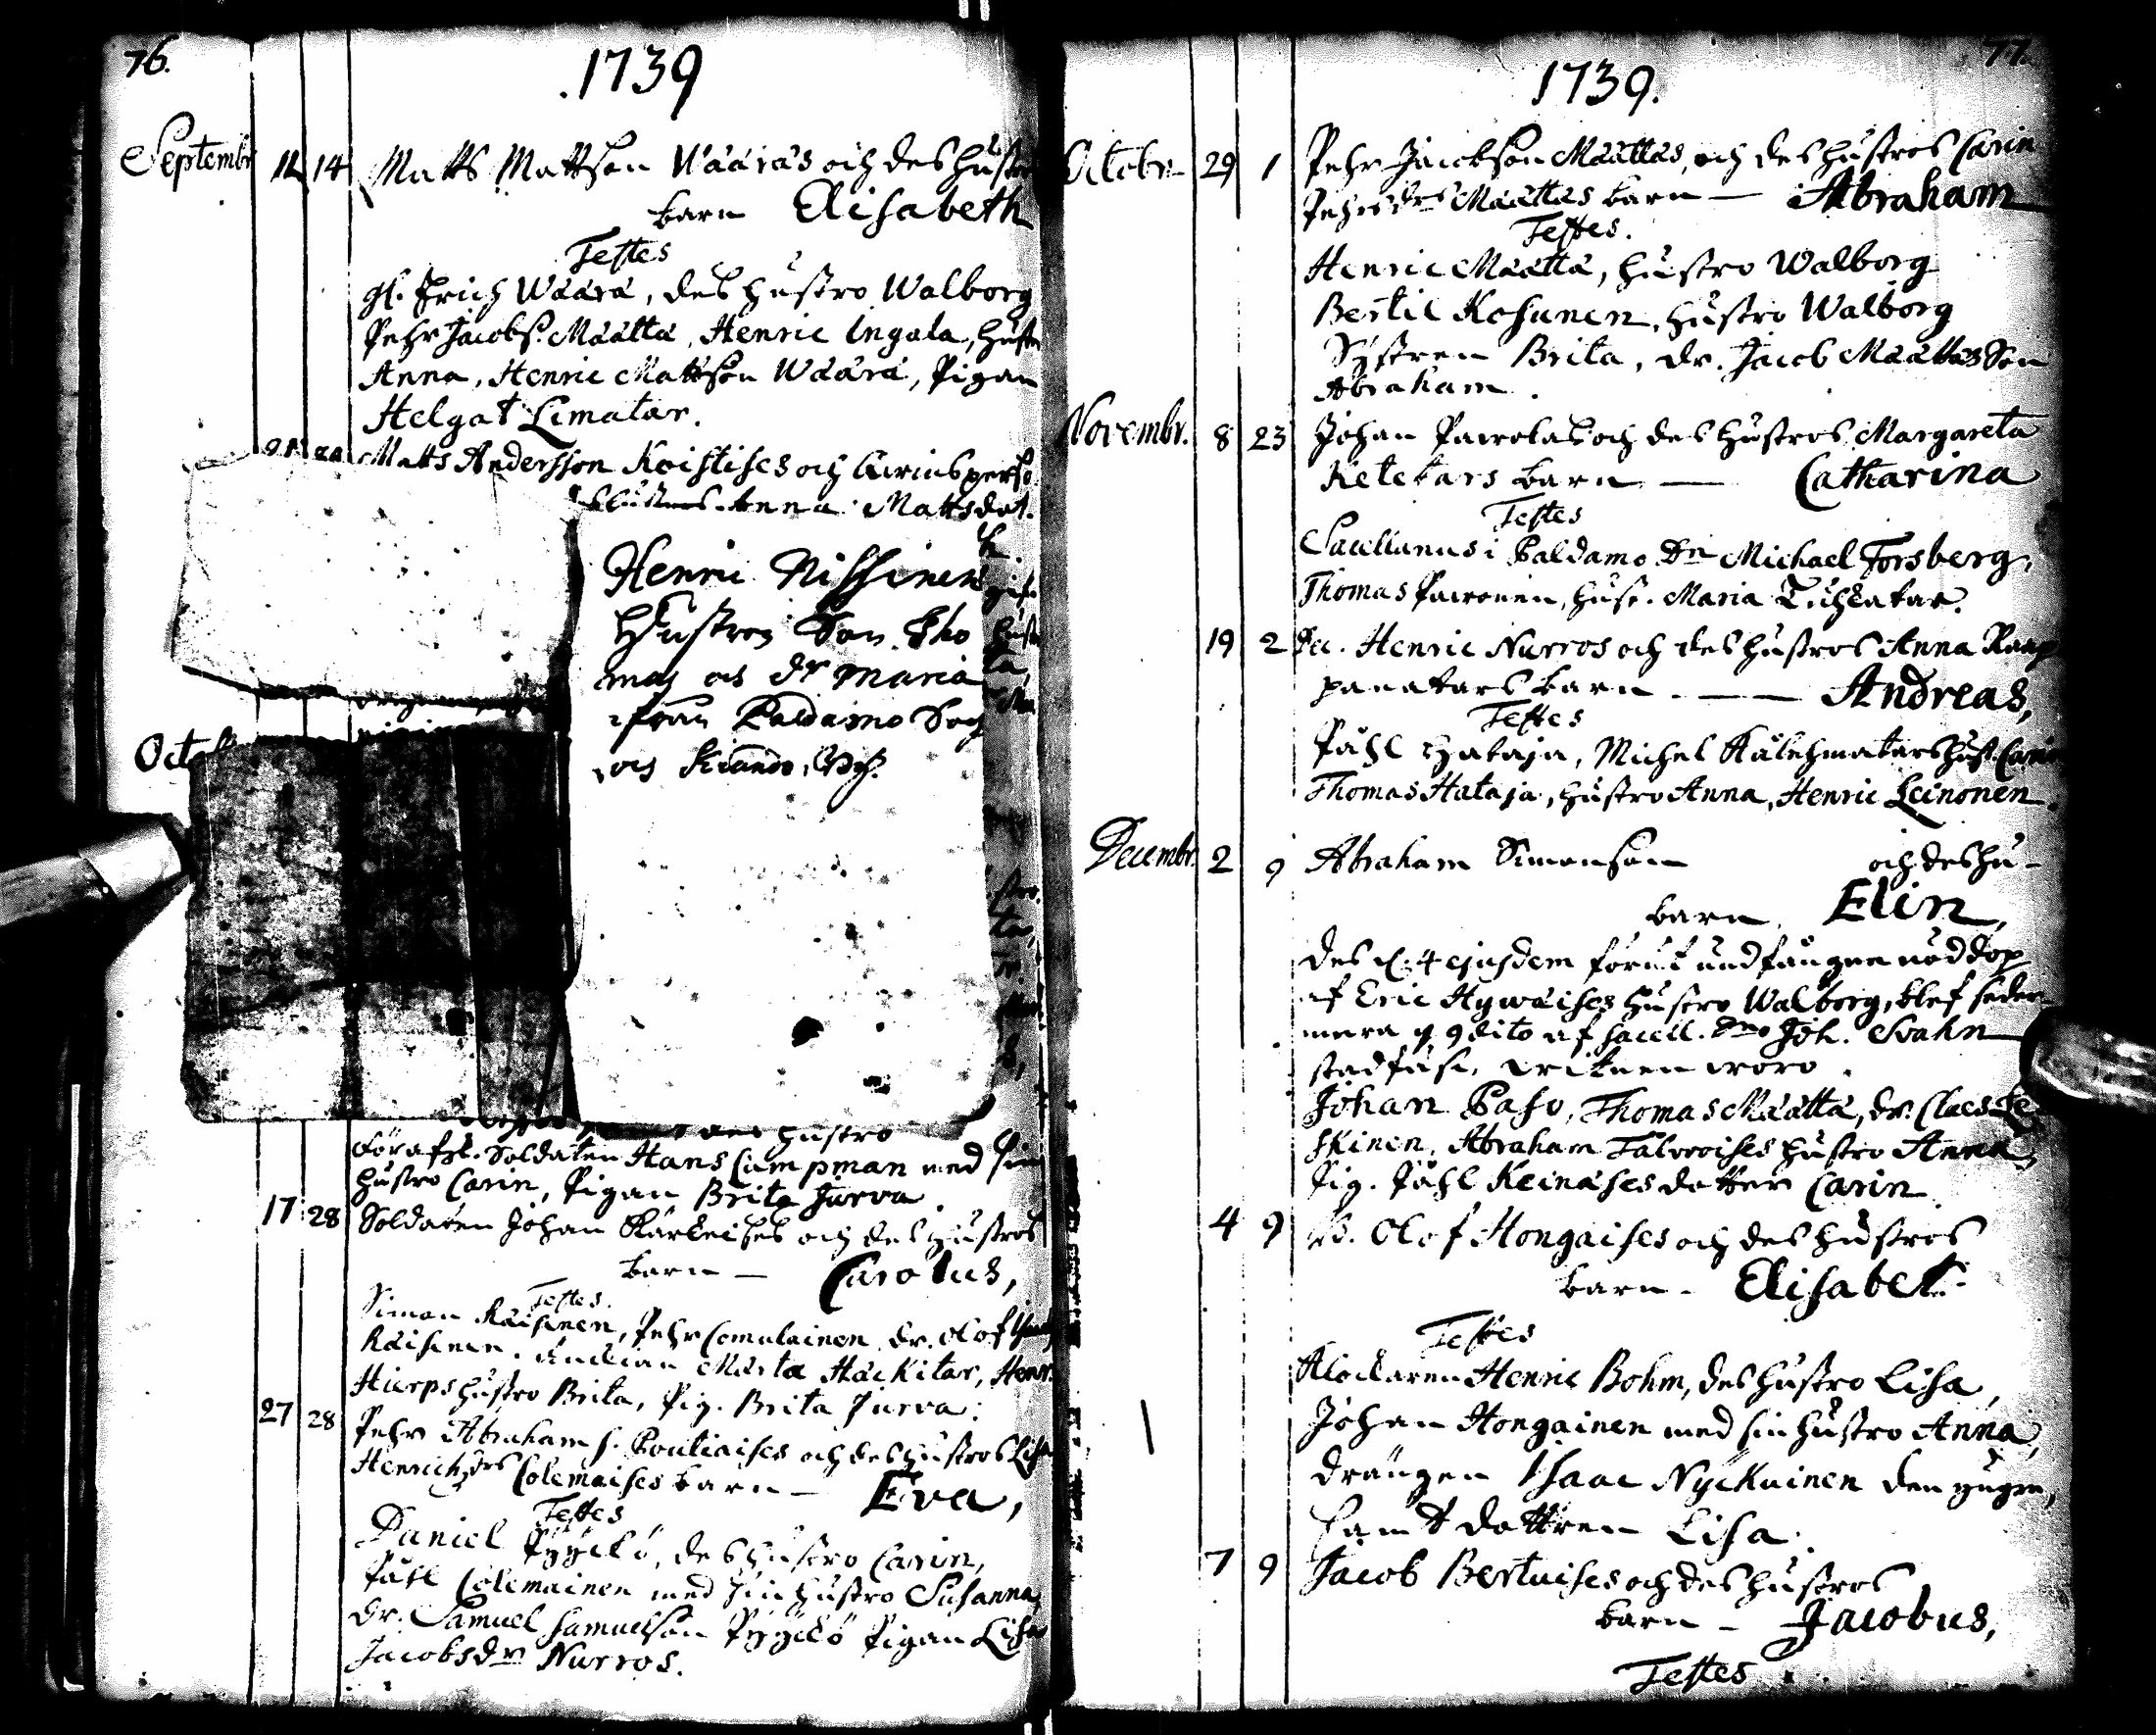 76.
1739
Septembr 12 14 Matts Mattson Wäärås och des hustr
barn Elisabeth
Testes
gl. Erich Wäärä, des hustro Walborg
Pehr Jacobs. Määttä, Henric Ingala, hustr
Anna, Henric Mattson Wäärä, Pigan
Helga Limatar.
Matts Andersson Koistises och
Anna Mattsdot.
Henric Nissinens
Hustros Son Tho
mas och dr Maria
ifrån Paldamo Soch
och Kiando
Octob
hustro
Soldaten Hans Campman med sin
hustro Carin, Pigan Brita Jurva.
17 28 Soldaten Johan Kärkeises och des hustros
barn — Carolus,
Testes.
Simon Räisinen, Pehr Comulainen, dr. Olof
Räisinen. Märta Häckitar, Henr.
Hierps hustro Brita, Pig. Brita Jurva.
27 28 Pehr Abrahams. Poutiaises och des hustros Lisa
Henrichsdrs Colemaises barn — Eva,
Testes
Daniel Pyyckö, des hustro Carin,
Påhl Colemainen med sin hustro Susanna,
dr. Samuel Samuelson Pyyckö Pigan Lisa
Jacobsdr Nurros.
77.
1739.
Octobr 29 1 Pehr Jacobson Määttäs, och des hustros Carin
Pehrsdrs Määttäs barn — Abraham
Testes.
Henric Määttä, hustro Walborg
Bertil Kosunen, hustro Walborg
Systren Brita, dr. Jacob Määttäs Son
Abraham.
Novembr. 8 23 Johan Pawolas och des hustros Margareta
Keteitars barn — Catharina
Testes
Sacellanus i Paldamo Dn Michael Forsberg,
Thomas Pawonen, hust. Maria
19 2 Dec. Henric Nurros och des hustros Anna Raap
panatars barn. — Andreas,
Testes
Påhl Hataja, Michel hust. Carin
Thomas Hataja, hustro Anna, Henric Leinonen.
Decembr. 2 9 Abraham Simonson och des hu-
barn. Elin,
des d. 4 ejusdem förut undfångne nöddop
af Eric Hywäises hustro Walborg, blef seder-
mera d 9 dito af Sacell. Dno Joh. Svahn
stadfäst, witnen woro.
Johan Paso, Thomas Määttä, dr. Claes
skinen, Abraham Talwoises hustro Anna,
Pig. Påhl Keinäses dotter Carin
4 9 B. Olof Hongaises och des hustros
barn. Elisabet.
Testes
Klockaren Henric Bohm, des hustro Lisa,
Johan Hongainen med sin hustro Anna,
drängen Isaac Nyckainen den yngre,
samt dottren Lisa.
7 9 Jacob Bertuises och des hustros
barn — Jacobus,
Testes